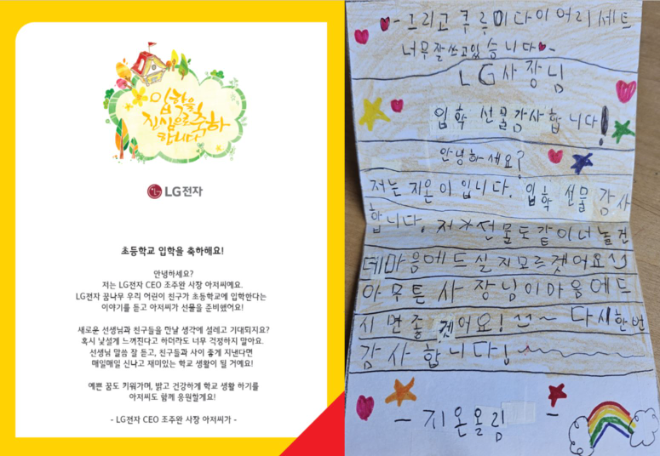 입학을
진심으로 축하
합니다
LG전자
초등학교 입학을 축하해요!
안녕하세요?
저는 LG전자 CEO 조주완 사장 아저씨예요.
LG전자 꿈나무 우리 어린이 친구가 초등학교에 입학한다는
이야기를 듣고 아저씨가 선물을 준비했어요!
새로운 선생님과 친구들을 만날 생각에 설레고 기대되지요?
혹시 낯설게 느껴진다고 하더라도 너무 걱정하지 말아요.
선생님 말씀 잘 듣고, 친구들과 사이 좋게 지낸다면
매일매일 신나고 재미있는 학교 생활이 될 거예요!
예쁜 꿈도 키워가며, 밝고 건강하게 학교 생활 하기를
아저씨도 함께 응원할게요!
- LG전자 CEO 조주완 사장 아저씨가 -
- 그리고 쿠루미다이어리세트
너무잘쓰고있습니다
LG사장님
입학 선물감사합니다!
안녕하세요?
저는 지온이입니다. 입학 선물 감사
합니다. 저* 선물도 같이 너 놓건
데마음에드실지모르겟어요
아무튼 사장님이마음에드
시면좋겟어요! ~ 다시한번
감사합니다!
- 지온올림